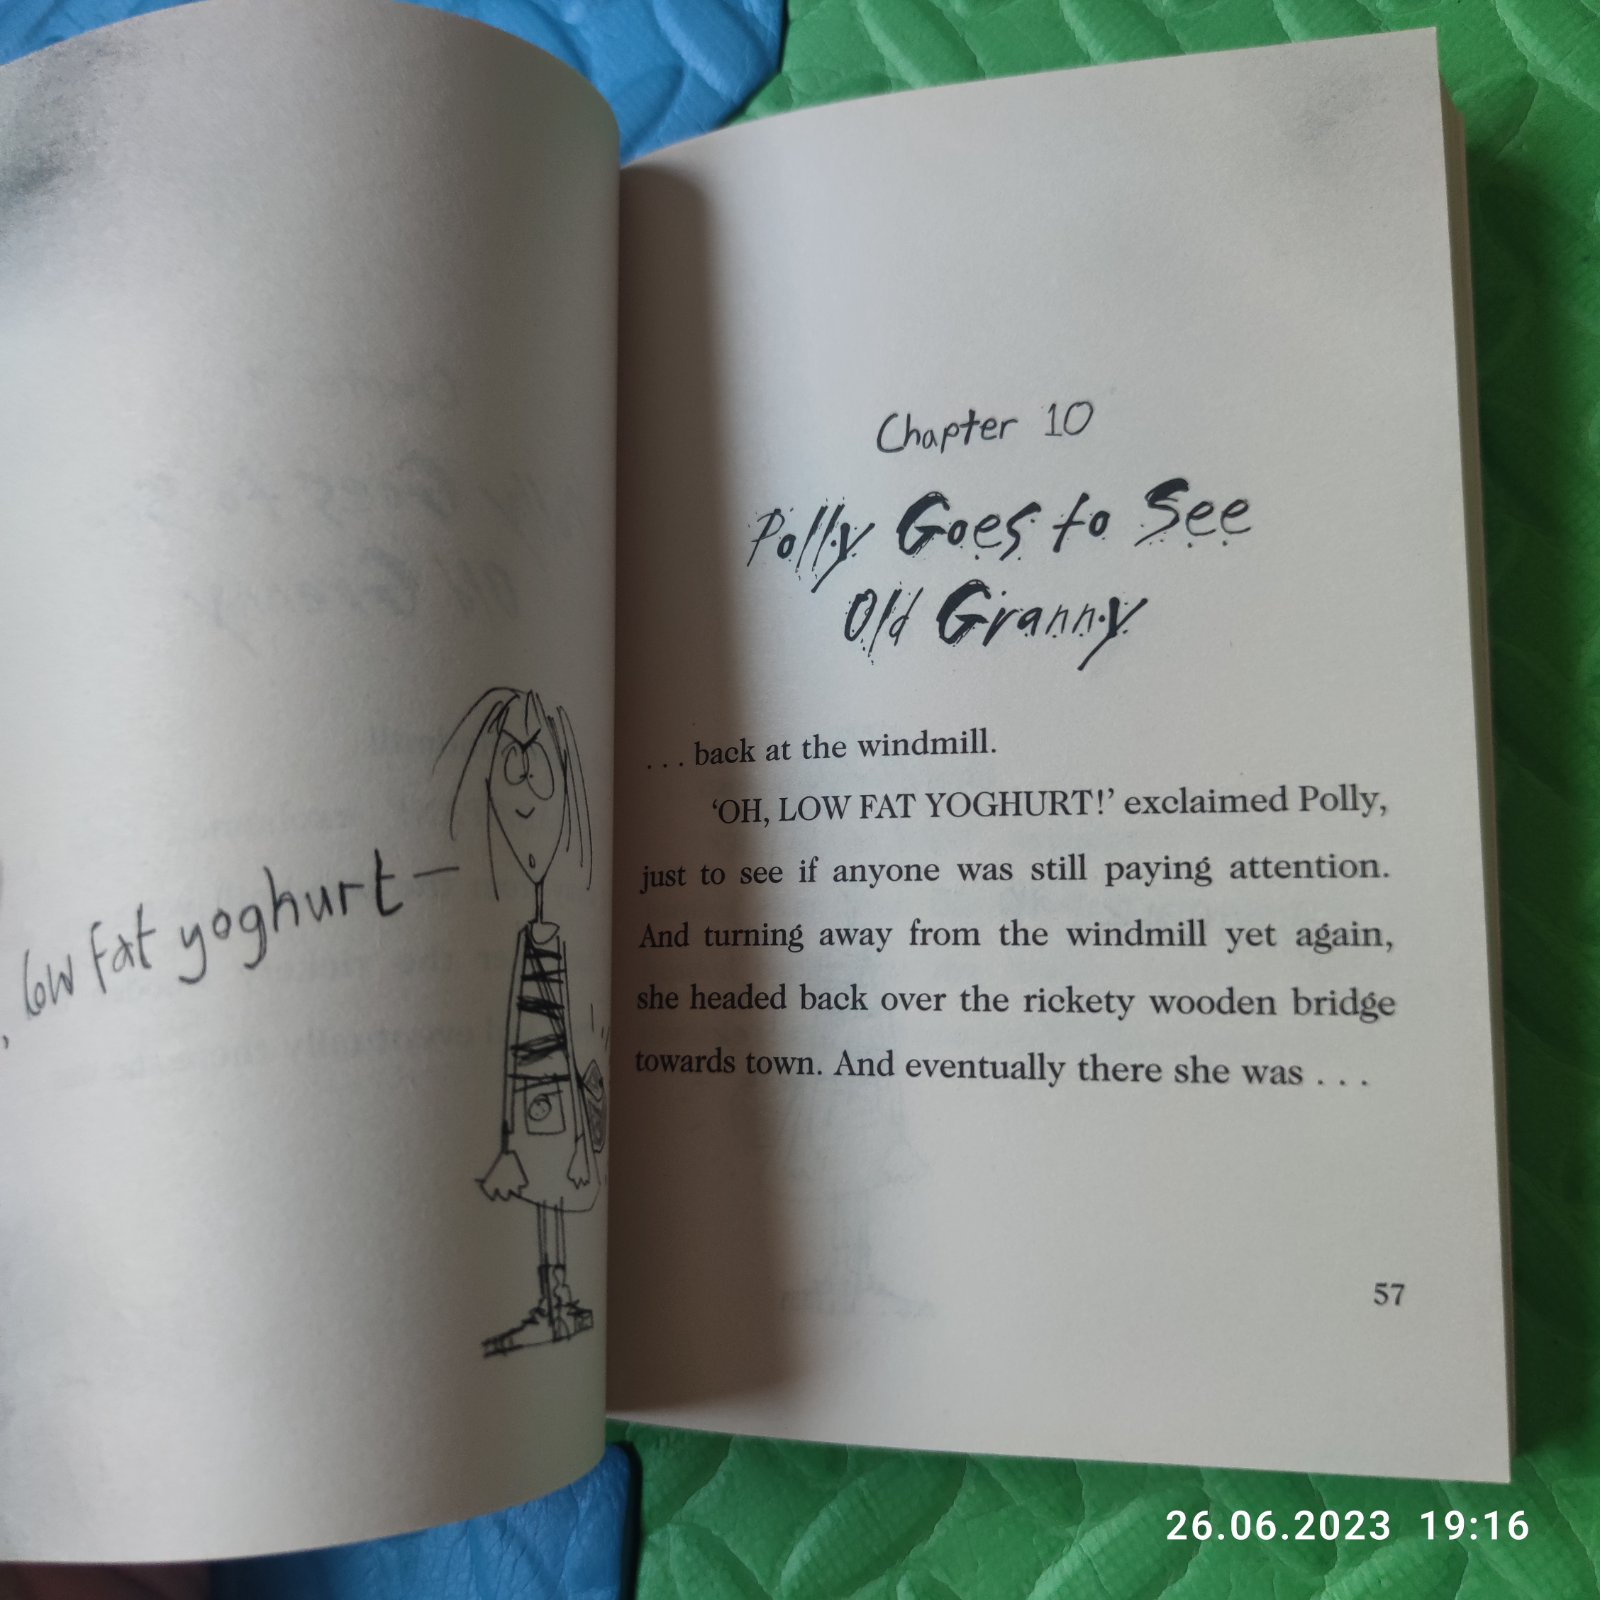 , low fat yoghurt —
Chapter 10
Polly Goes to See
Old Granny
. . . back at the windmill.
‘OH, LOW FAT YOGHURT!’ exclaimed Polly,
just to see if anyone was still paying attention.
And turning away from the windmill yet again,
she headed back over the rickety wooden bridge
towards town. And eventually there she was . . .
57
26.06.2023 19:16